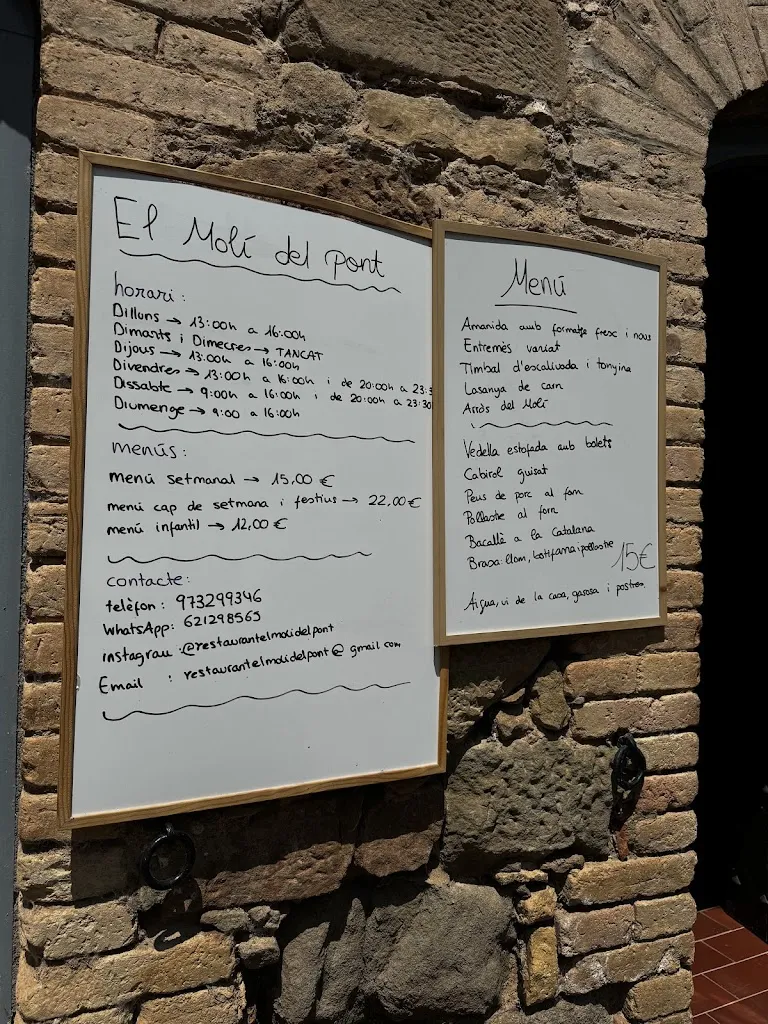 El Molí del pont
horari:
Dilluns → 13:00h a 16:00h
Dimarts i Dimecres → TANCAT
Dijous → 13:00h a 16:00h
Divendres → 13:00h a 16:00h i de 20:00h a 23:3
Dissabte → 9:00h a 16:00h i de 20:00h a 23:30
Diumenge → 9:00 a 16:00h
menús:
menú setmanal → 15,00 €
menú cap de setmana i festius → 22,00 €
menú infantil → 12,00 €
contacte:
telèfon: 973299346
WhatsApp: 621298565
instagram: @restaurantelmolidelpont
Email : restaurantelmolidelpont@gmail.com
Menú
Amanida amb formatge fresc i nous
Entremès variat
Timbal d'escalivada i tonyina
Lasanya de carn
Arròs del Molí
Vedella estofada amb bolets
Cabirol guisat
Peus de porc al forn
Pollastre al forn
Bacallà a la Catalana
Brasa: llom, botifarra i pollastre
15€
Aigua, vi de la casa, gasosa i postres